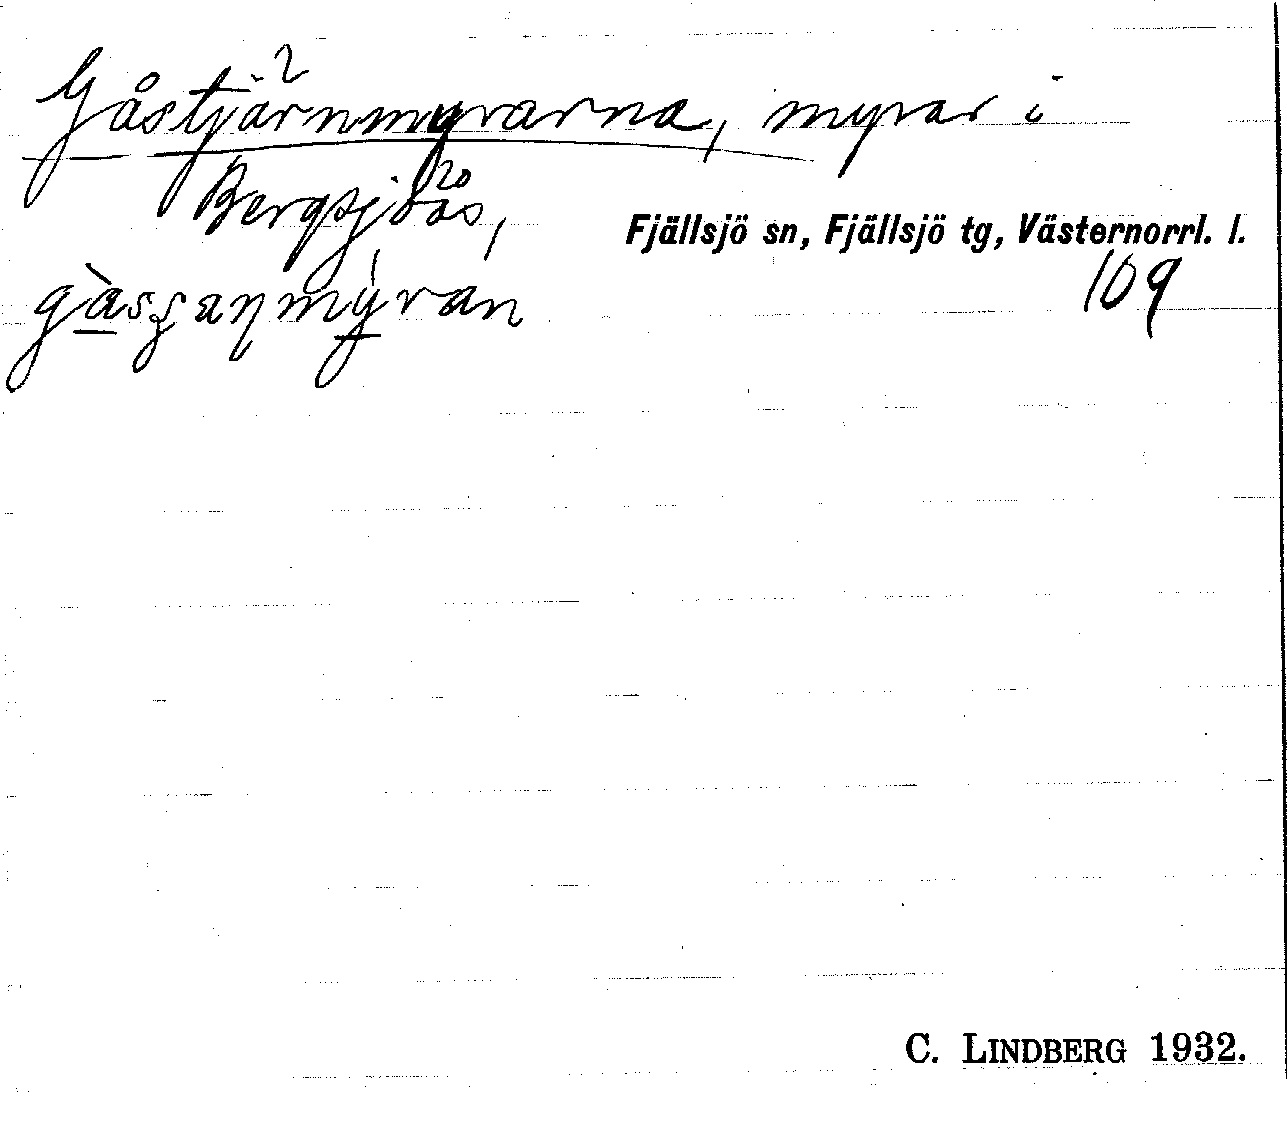 Gåstjärnmyrarna, myrar i
Bergsjöås,
Fjällsjö sn, Fjällsjö tg, Västernorrl. l.
109
C. LINDBERG 1932.